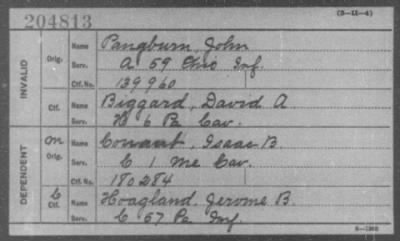 204813
(3-II-4)
INVALID
Orig. Name Pangburn, John
Serv. A 59 Ohio Inf.
Ctf. No. 139960
Ctf. Name Biggard, David A
Serv. H 6 Pa Cav.
DEPENDENT
Orig. Name Conant, Isaac B.
Serv. C 1 Me Cav.
Ctf. No. 180284
Ctf. Name Hoagland, Jerome B.
Serv. C 57 Pa Inf.